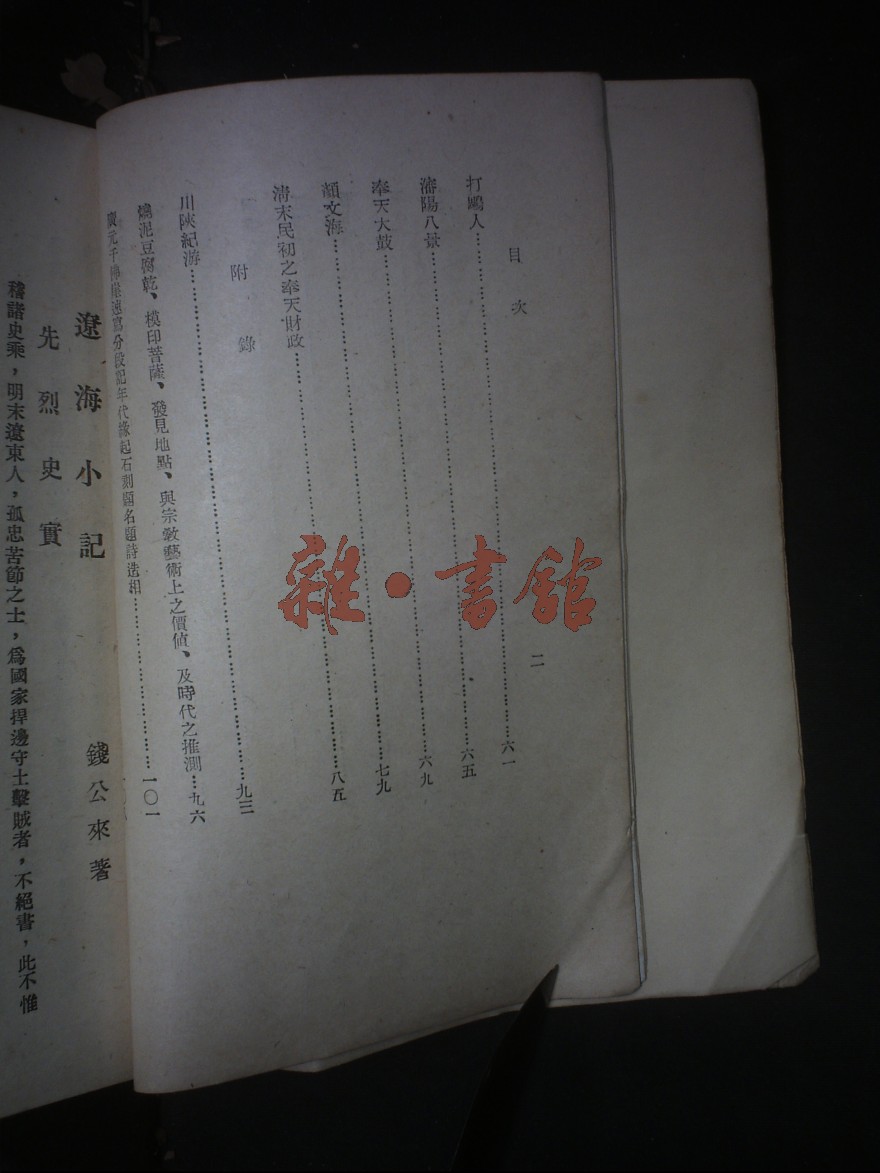 目次
二
打鵰人……六一
瀋陽八景……六五
奉天大鼓……六九
顏文海……七九
清末民初之奉天財政……八五
附錄
川陝紀游……九三
爛泥豆腐乾、模印菩薩、發見地點、與宗教藝術上之價值、及時代之推測…九六
廣元千佛崖速寫分段記年代緣起石刻題名題詩造相……一〇一
遼海小記
錢公來著
先烈史實
稽諸史乘，明末遼東人，孤忠苦節之士，為國家捍邊守土擊賊者，不絕書，此不惟
雜·書館